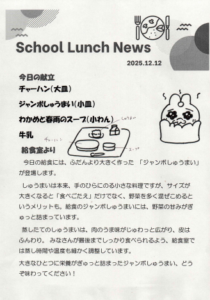 School Lunch News
2025.12.12
今日の献立
チャーハン(大皿)
ジャンボしゅうまい(小皿)
わかめと春雨のスープ(小わん)
牛乳
給食室より
今日の給食には、ふだんより大きく作った 「ジャンボしゅうまい」
が登場します。
しゅうまいは本来、手のひらにのる小さな料理ですが、サイズが
大きくなると「食べごたえ」だけでなく、野菜を多く混ぜこめると
いうメリットも。給食のジャンボしゅうまいには、野菜の甘みがぎ
ゅっと詰まっています。
蒸したてのしゅうまいは、肉のうま味がじゅわっと広がり、皮は
ふんわり。みなさんが最後までしっかり食べられるよう、給食室で
は蒸し時間や温度も細かく調整しています。
大きなひとつに栄養がぎゅっと詰まったジャンボしゅうまい、どう
ぞ味わってください!